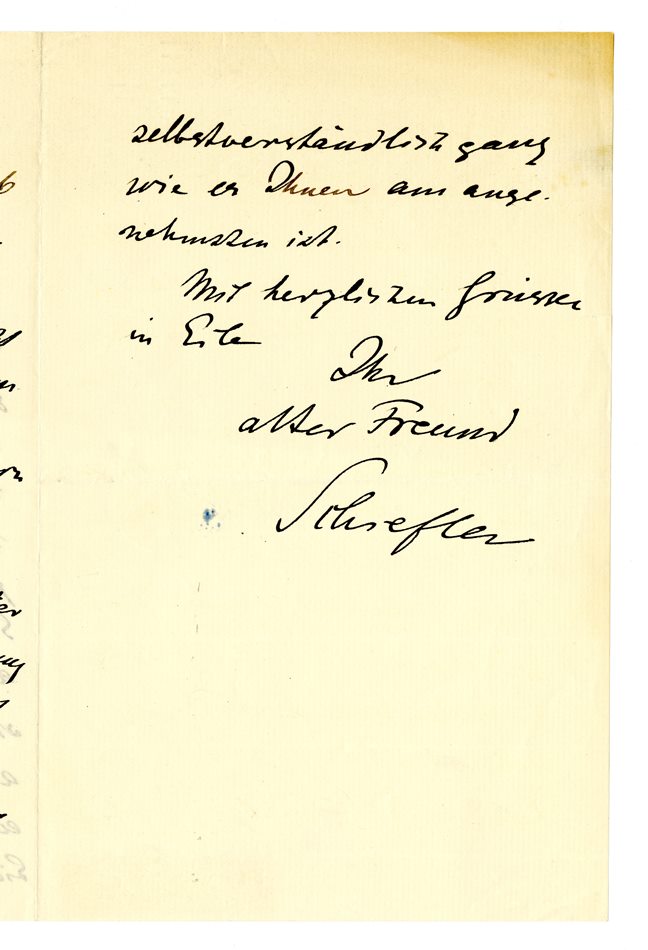 selbstverständlich ganz
wie es Ihnen am ange-
nehmsten ist.
Mit herzlichen Grüssen
in Eile
Ihr
alter Freund
Schiefler